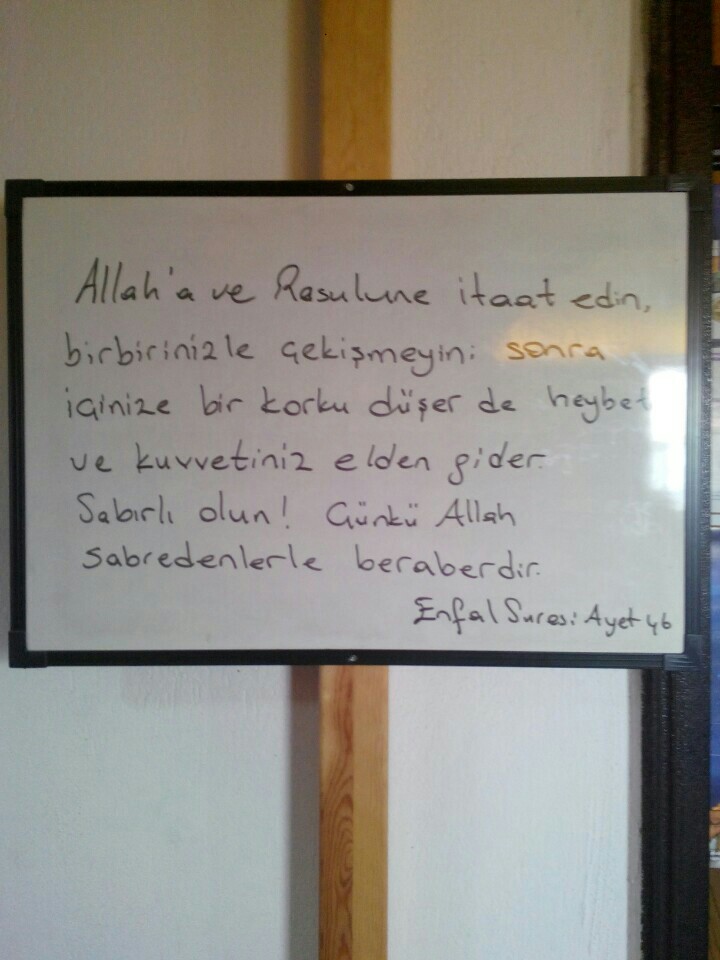 Allah'a ve Rasulune itaat edin,
birbirinizle çekişmeyin; sonra
içinize bir korku düşer de heybet
ve kuvvetiniz elden gider.
Sabırlı olun! Çünkü Allah
sabredenlerle beraberdir.
Enfal Suresi Ayet 46